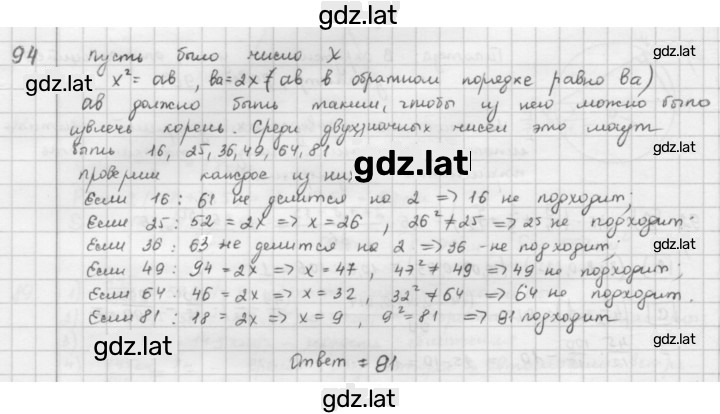 gdz.lat
94 пусть было число x
gdz.lat
gdz.lat x² = ab, ba = 2x (ab в обратном порядке равно ba)
ab должно быть таким, чтобы из него можно было
извлечь корень. Среди двухзначных чисел это могут
быть 16, 25, 36, 49, 64, 81 gdz.lat
gdz.lat
проверим каждое из них
Если 16 : 61 не делится на 2 => 16 не подходит;
Если 25 : 52 = 2x => x = 26, 26² ≠ 25 => 25 не подходит;
Если 36 : 63 не делится на 2 => 36 - не подходит; gdz.lat
Если 49 : 94 = 2x => x = 47, 47² ≠ 49 => 49 не подходит;
Если 64 : 46 = 2x => x = 32, 32² ≠ 64 => 64 не подходит.
gdz.lat
Если 81 : 18 = 2x => x = 9, 9² = 81 => 81 подходит
gdz.lat
gdz.lat
Ответ = 81